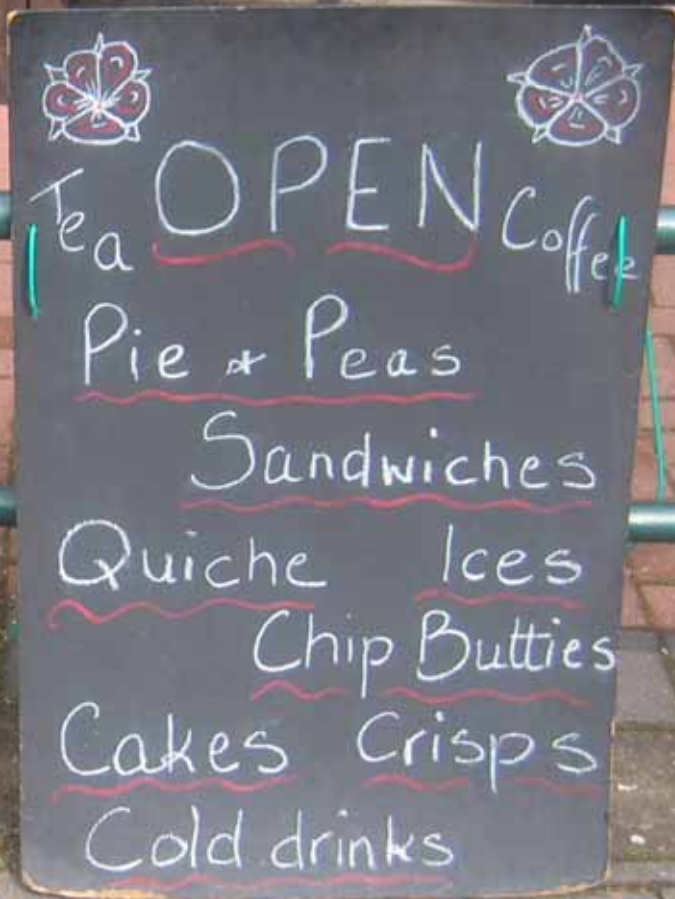 Tea OPEN Coffee
Pie & Peas
Sandwiches
Quiche Ices
Chip Butties
Cakes Crisps
Cold drinks